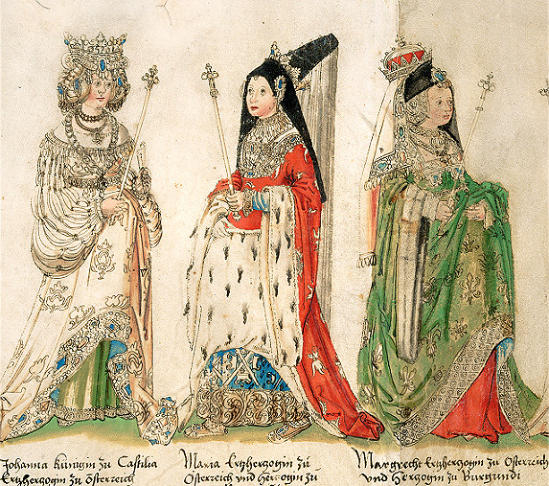 Johanna künigin zu Castilia
Ertzhertzogin zu Österreich
Maria Ertzhertzogin zu
Österreich vnd Hertzogin zu
Margrecht Ertzhertzogin zu Österreich
vnd Hertzogin zu Burgundi